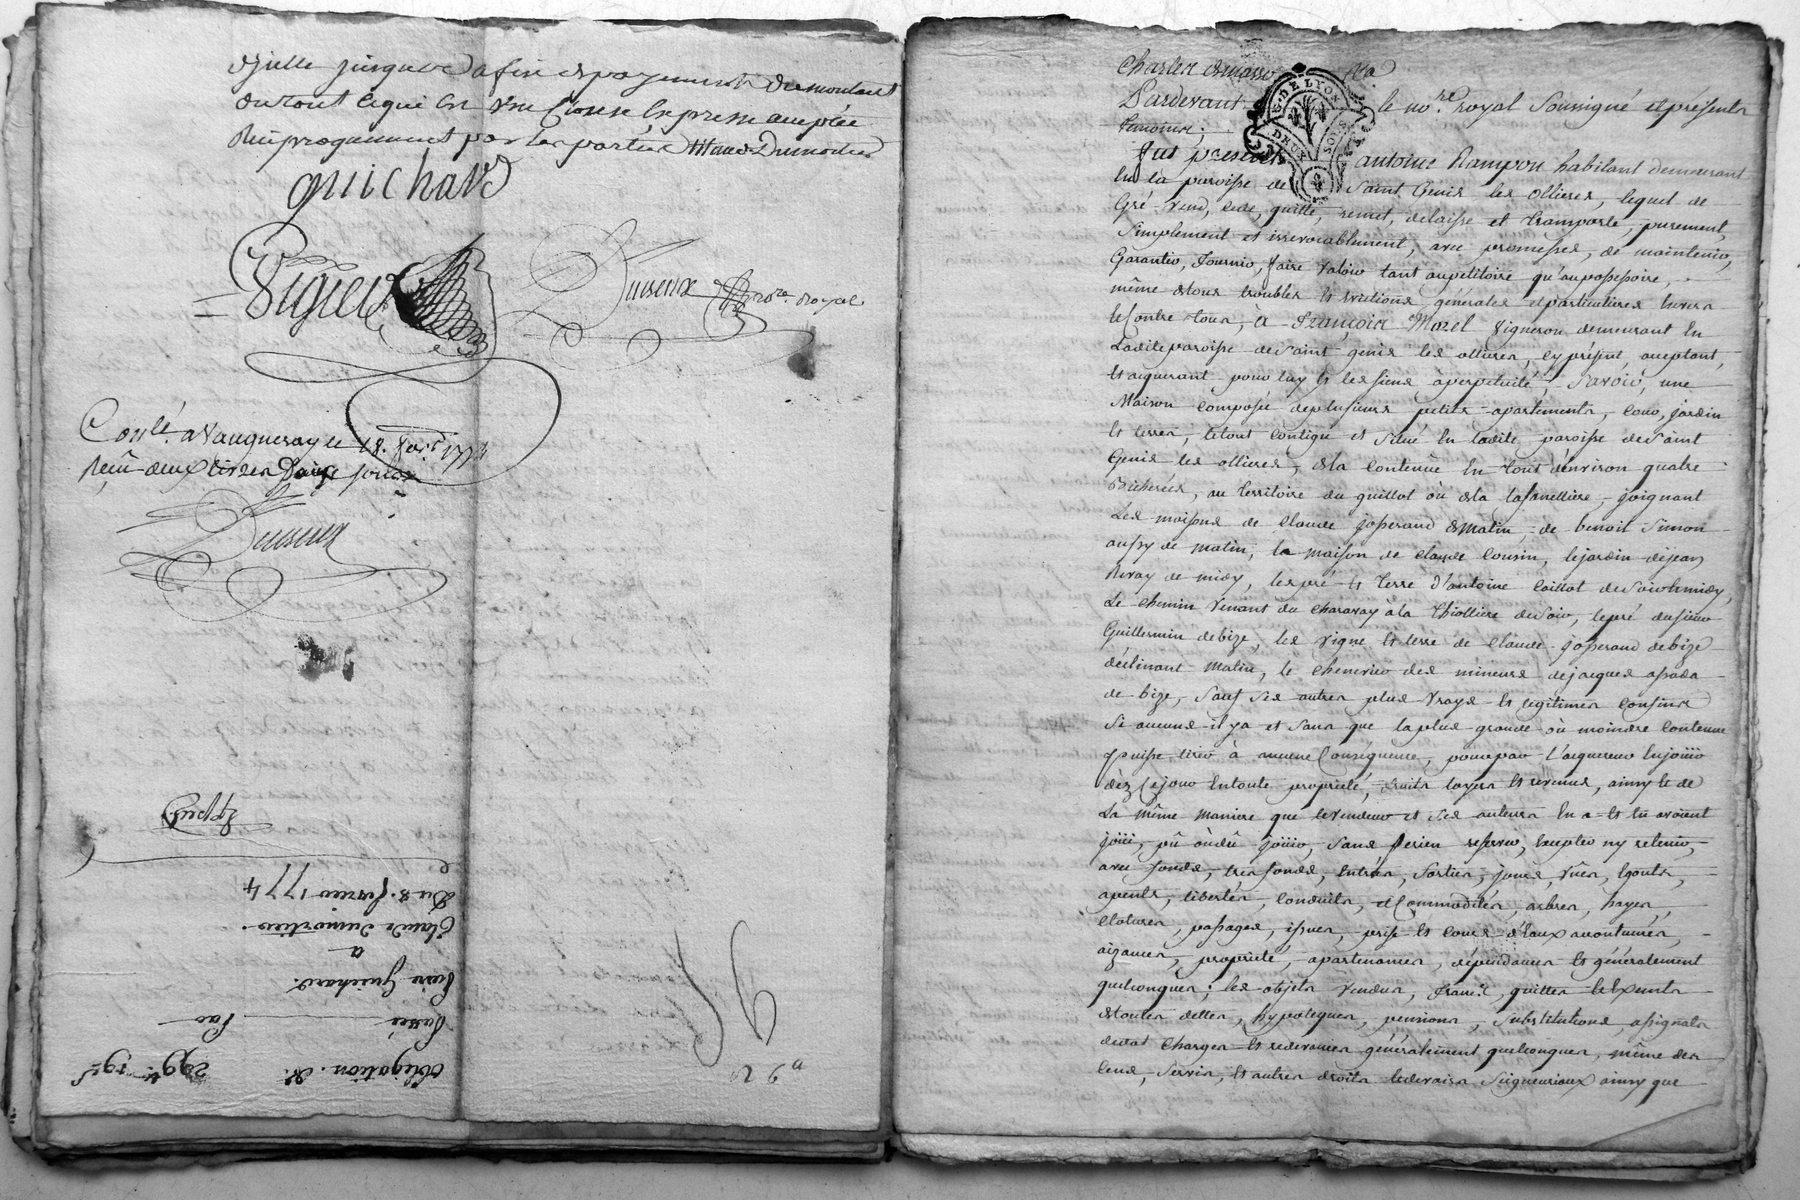 jusques a fin de payement du montant
du tout ce qui est une clause expresse acceptée
Reciproquement par les parties
guichard
Viguier
notre. Royal
Conlé. a Vaugneray le 18. fevr. 1774
Reçu deux livres Douze sous
Obligation. de. 299tt. 19s
Passée par
Pierre Guichard.
a
Claude Dumortier.
Du 8. fevrier 1774
Charles
G. DE LYON
DEUX SOLS
Pardevant le nore. royal soussigné et présents
temoins;
fut présent antoine Rampon habitant demeurant
en la paroisse de Saint Genis les Ollieres, lequel de
Gré vend, cede, quitte, remet, delaisse et transporte, purement,
Simplement et irrevocablement, avec promesses, de maintenir,
Garantir, fournir, faire valoir tant au petitoire qu'au possessoire,
même de tous troubles et evictions générales et particulieres envers
et Contre tous, a François Morel vigneron demeurant en
Ladite paroisse de Saint genis les ollieres, cy présent, acceptant,
et aquerant, pour luy et les siens a perpetuité, Savoir, une
Maison composée de plusieurs petits apartements, cour, jardin
et terres, le tout contigu et situé en ladite paroisse de Saint
Genis les ollieres, de la contenüe en tout d'environ quatre
Bicherées, au territoire du guillot où de la joignant
Les maisons de Claude josserand de Matin, de benoit Simon
aussy de matin, la maison de claude Cousin, le jardin de jean
Rivay de midy, les pré et terre d'antoine caillot de Soir et midy,
Le chemin tenant du charavay à la Thiolliere de Soir, le pré du sieur
Guillermin de bize, les vigne et terre de claude josserand de bize
déclinant matin, le chenevier des mineurs de jacques
de bize, Sauf ses autres plus vrays et legitimes confins
Si aucuns il y a et sans que la plus grande où moindre contenue
puisse tirer à aucune Conséquence, pour par L'aquereur en joüir
dèz ce jour en toute proprieté, fruits loyers et revenus, ainsy et de
La même maniere que le vendeur et ses auteurs en a et en avoient
joüi, pû où dû joüir, sans se rien reserver, excepter ny retenir,
avec fonds, tres fonds, entrées, sorties, jours, vües, egouts,
apents, libertés, conduits, et Commodités, arbres, hayes,
Clotures, passages, issues, prise et cours d'Eaux acoutumés,
aizances, proprieté, apartenances, dépendances et généralement
quelconques; les objets vendus, francs, quittes et Exempts
de toutes dettes, hypoteques, pensions, substitutions, assignats
de tout charges et redevances généralement quelconques, même des
Cens, Servis, et autres droits et devoirs Seigneuriaux ainsy que